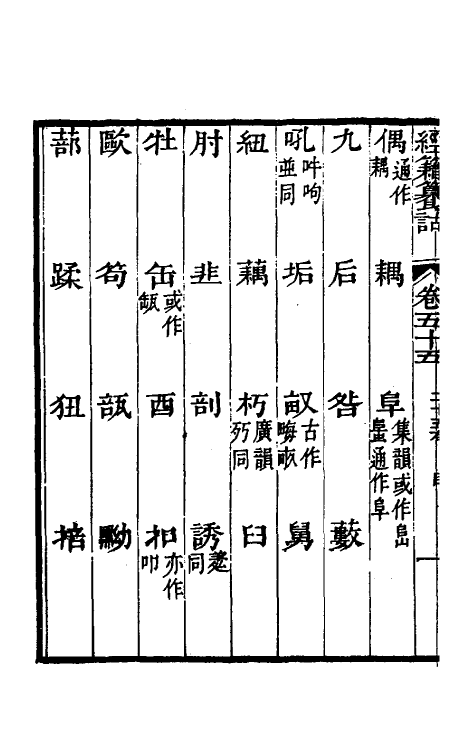 經籍籑詁 卷五十五 一
偶通作耦 耦 阜集韻或作峊通作阜
九 后 咎 藪
吼吽呴並同 垢 畝古作畮畞 舅
紐 藕 朽廣韻㱙同 臼
肘 韭 剖 誘同
牡 缶或作缻 酉 扣亦作叩
歐 笱 瓿 黝
蔀 蹂 狃 掊